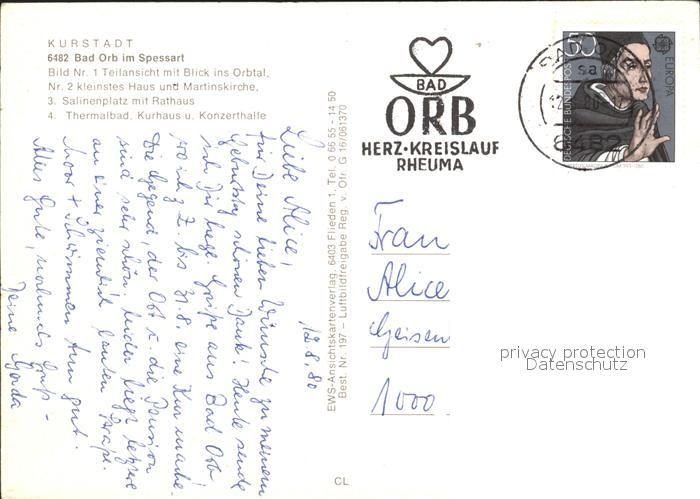 KURSTADT
6482 Bad Orb im Spessart
Bild Nr. 1 Teilansicht mit Blick ins Orbtal,
Nr. 2 kleinstes Haus und Martinskirche,
3. Salinenplatz mit Rathaus
4. Thermalbad, Kurhaus u. Konzerthalle
12.8.80
Liebe Alice,
für Deine lieben Wünsche zu meinem
Geburtstag schönen Dank! Heute sende
ich Dir liebe Grüße aus Bad Orb,
wo ich z. Z. bis 31.8. eine Kur mache.
Die Gegend, der Ort u. die Pension
sind sehr schön, leider liegt letztere
an einer ziemlich lauten Straße.
Moor + Schwimmen tun gut.
Alles Gute, nochmals Gruß -
Deine Gerda
EWS-Ansichtskartenverlag, 6403 Flieden 1, Tel. 0 66 55 - 14 50
Best. Nr. 197 – Luftbildfreigabe Reg. v. Ofr. G 16/061370
CL
BAD
ORB
HERZ·KREISLAUF
RHEUMA
50
DEUTSCHE BUNDESPOST
EUROPA
6482
Frau
Alice
Geisen
1000
privacy protection
Datenschutz